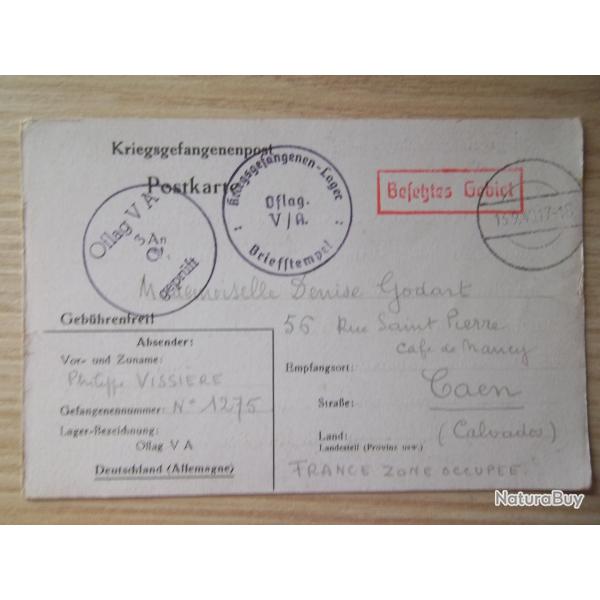 Kriegsgefangenenpost
Postkarte
Kriegsgefangenen-Lager
Oflag.
V/A.
Briefstempel
Besetztes Gebiet
Oflag V A
geprüft
Mademoiselle Denise Godart
56 Rue Saint Pierre
Cafe de Nancy
Gebührenfrei!
Absender:
Vor- und Zuname:
Philippe VISSIERE
Gefangenennummer: N° 1275
Lager-Bezeichnung:
Oflag V A
Deutschland (Allemagne)
Empfangsort: Caen
Straße:
Land: (Calvados)
Landesteil (Provinz usw.)
FRANCE ZONE OCCUPEE.
NaturaBuy